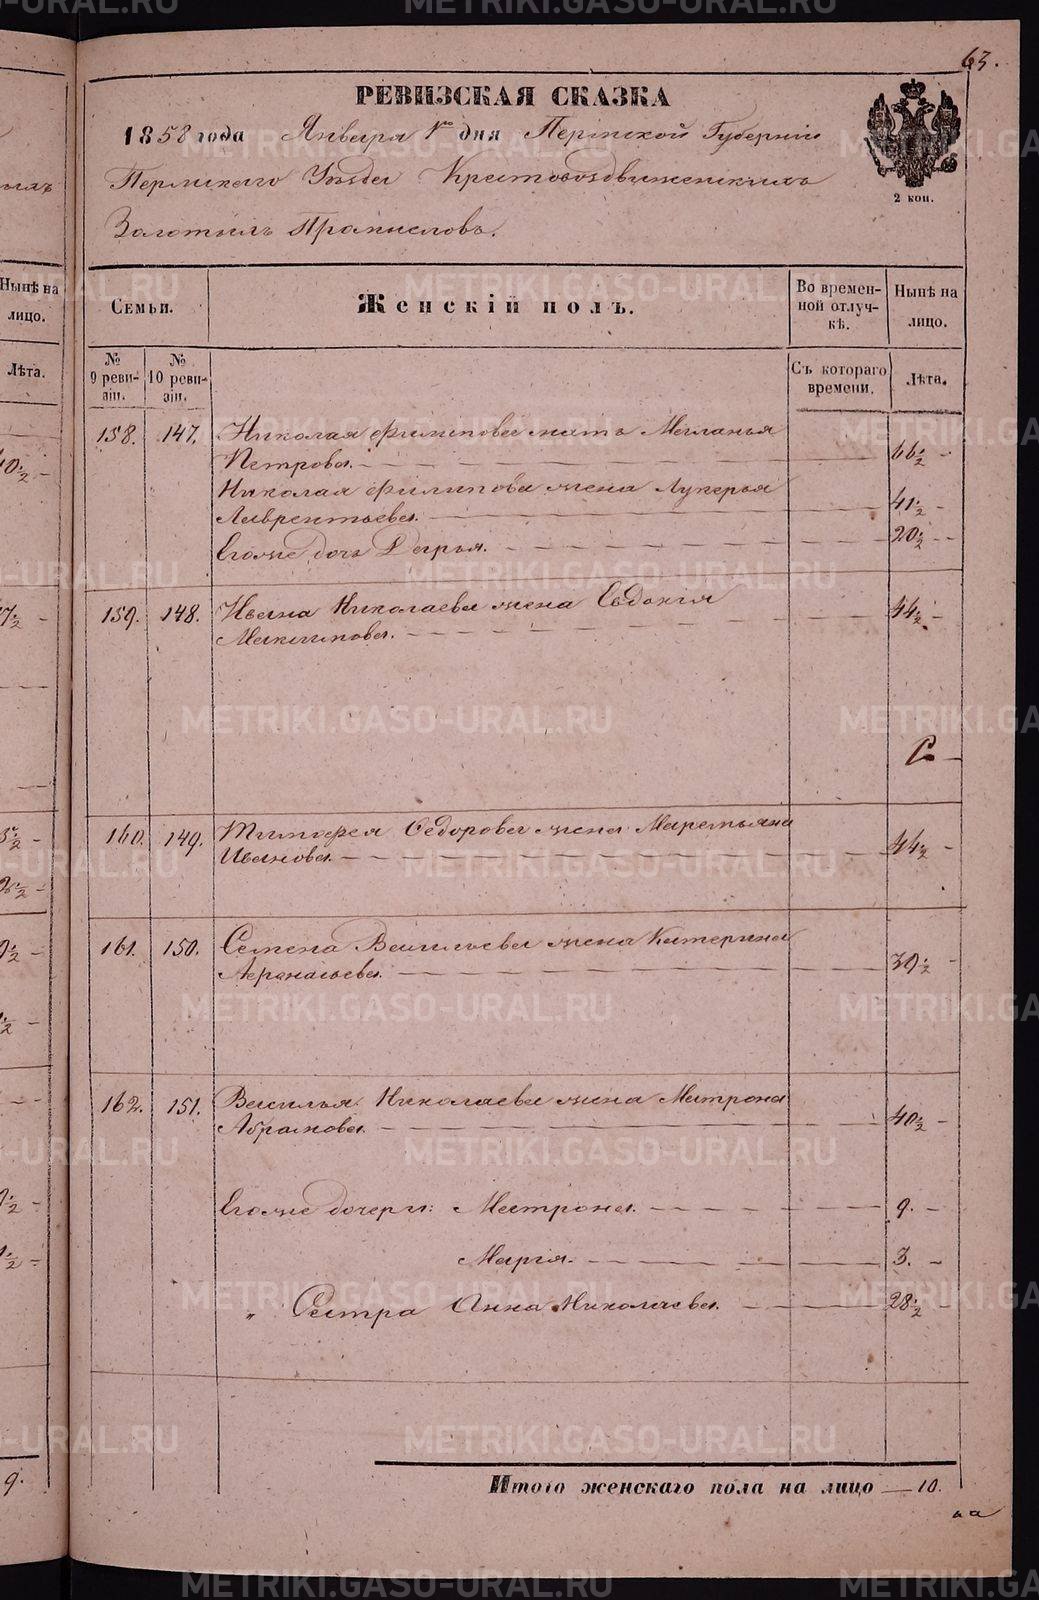 63.
РЕВИЗСКАЯ СКАЗКА
1858 года Января 1го дня Пермской Губерніи
Пермскаго Уѣзда Крестовоздвиженскихъ
Золотыхъ Промысловъ.
2 коп.
Нынѣ на лицо.
Лѣта.
Семьи.
Женскій полъ.
Во временной отлучкѣ.
Нынѣ на лицо.
№ 9 ревизіи.
№ 10 ревизіи.
Съ котораго времени.
Лѣта.
158. 147. Николая Филипова мать Меланья
Петрова. 66½
Николая Филипова жена Лукерья
Лаврентьева. 41½
Егоже дочь Дарья. 20½
159. 148. Ивана Николаева жена Евдокія 44½
Максимова.
160. 149. Тимофея Федорова жена Маремьяна
Иванова. 44½
161. 150. Семена Васильева жена Катерина
Афанасьева. 39½
162. 151. Василья Николаева жена Матрона
Абрамова. 40½
Егоже дочери: Матрона. 9.
Марія. 3.
" Сестра Анна Николаева. 28½
Итого женскаго пола на лицо 10.
9.
METRIKI.GASO-URAL.RU